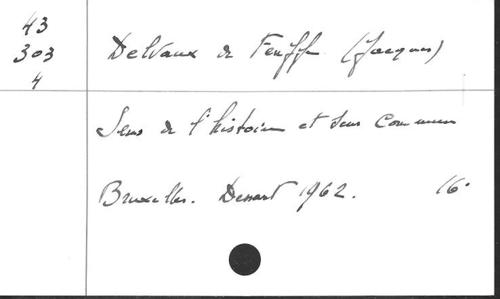 43
303
4
Delvaux de Fenffe (Jacques)
Sens de l'histoire et sens commun
Bruxelles. Dessart 1962. 16°